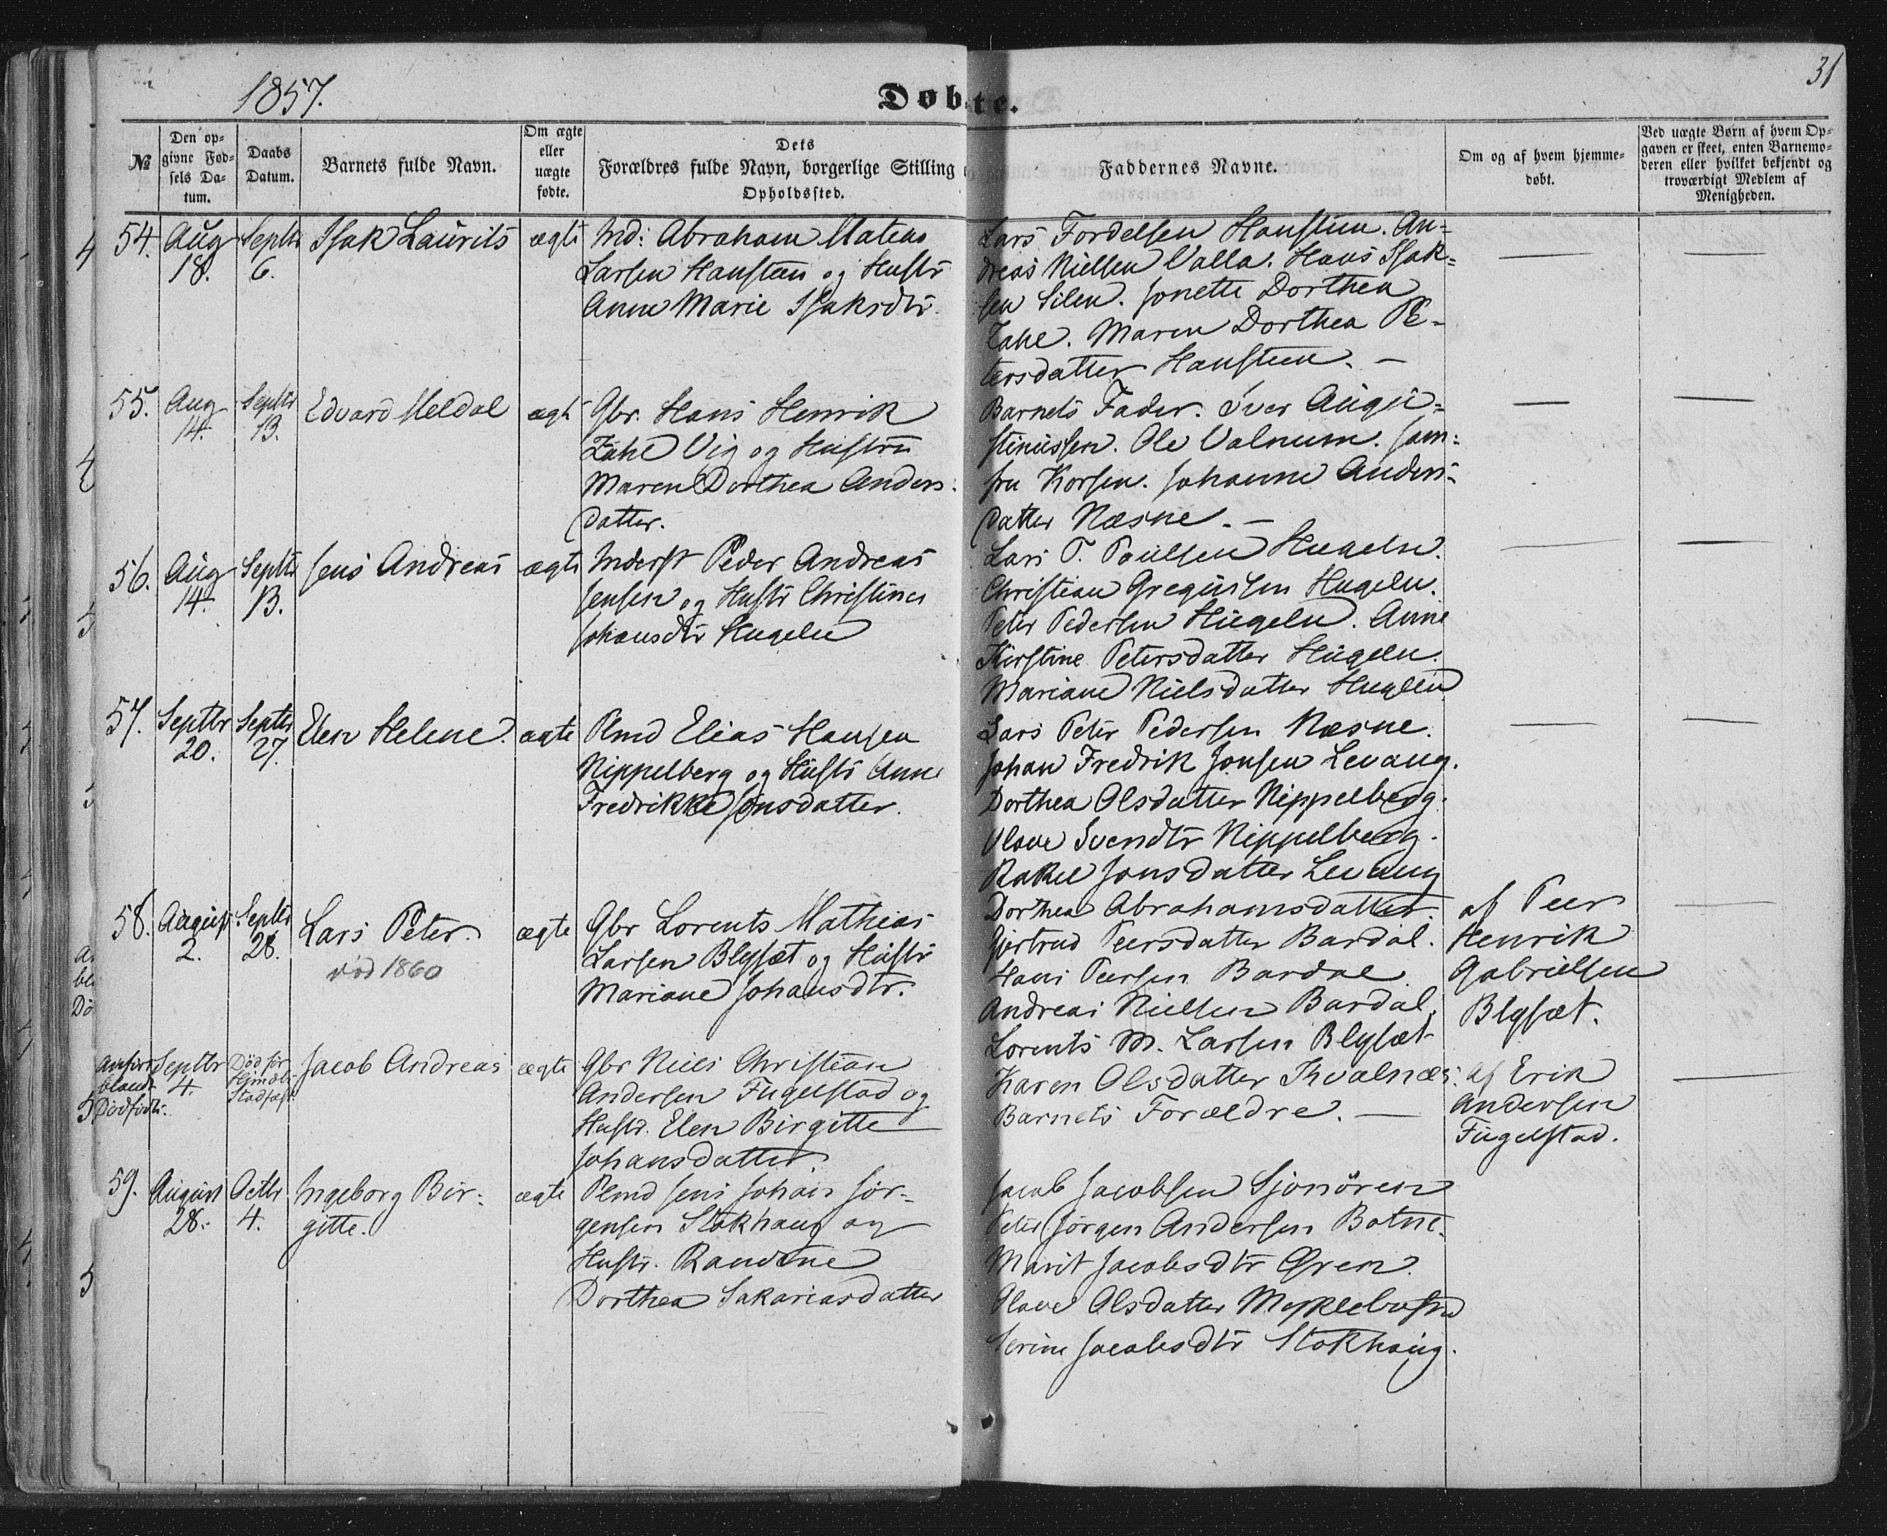 31
1857.
Døbte.
№
Den opgivne Fødsels Datum.
Daabs Datum.
Barnets fulde Navn.
Om ægte eller uægte fødte.
Dets Forældres fulde Navn, borgerlige Stilling Opholdssted.
Faddernes Navne.
Om og af hvem hjemmedøbt.
Ved uægte Børn af hvem Opgaven er skeet, enten Barnemoderen eller hvilket bekjendt og troværdigt Medlem af Menigheden.
54. Aug 18. Septbr 6. Isak Laurits ægte
Ind: Abraham Mateas
Larsen Hansteen og Hustr
Anne Marie Isaksdtr.
Lars Tordelsen Hansteen. An-
dreas Nielsen Valla. Hans Isak-
sen Silen. Jonette Dorthea
Zahl. Maren Dorthea Pe-
tersdatter Hansteen. —
55. Aug 14. Septbr 13. Edvard Meldal ægte
Gbr. Hans Henrik
Zahl Vig og Hustru
Maren Dorthea Anders-
datter.
Barnets Fader. Iver Augu-
stinussen. Ole Valnum. Jom-
fru Korsen. Johanne Anders-
datter Næsne. —
56. Aug 14. Septbr 13. Jens Andreas ægte
Inderst Peder Andreas
Jensen og Hustr Christine
Johansdtr Hugeln
Lars T. Poulsen Hugeln.
Christian Gregussen Hugeln.
Peter Pedersen Hugeln. Anne
Kirstine Petersdatter Hugeln.
Mariane Nielsdatter Hugeln
57. Septbr 20. Septbr 27. Elen Helene. ægte
Plmd Elias Hansen
Nippelberg og Hustr Anne
Fredrikke Jonsdatter.
Lars Peter Pedersen Næsne.
Johan Fredrik Jonsen Levang.
Dorthea Olsdatter Nippelberg.
Olave Svendtr Nippelberg.
Rakel Jonsdatter Levang
58. August 2. Septbr 28. Lars Peter. ægte
død 1860
Gbr Lorents Mathias
Larsen Blysæt og Hustr
Mariane Johansdtr.
Dorthea Abrahamsdatter.
Gjertrud Peersdatter Bardal.
Hans Peersen Bardal.
Andreas Nielsen Bardal.
Lorents M. Larsen Blysæt
af Peer
Henrik
Gabrielsen
Blysæt.
Anført blandt Dødfødte. Septbr 4. Død før Hjmdb. Stadfæst Jacob Andreas ægte
Gbr Niels Christian
Andersen Fugelstad og
Hustr. Elen Birgitte
Johansdatter.
Karen Olsdatter Kvalnæs.
Barnets Forældre. —
af Erik
Andersen
Fugelstad.
59. August 28. Octbr 4. Ingeborg Bir-
gitte. ægte
Plmd Jens Johan Jør-
gensen Stokhaug og
Hustr. Randine
Dorthea Sakariasdatter
Jacob Jacobsen Sjonøren
Peter Jørgen Andersen Botne.
Marit Jacobsdtr Gren.
Olave Olsdatter Myklebust
Serine Jacobsdtr Stokhaug.